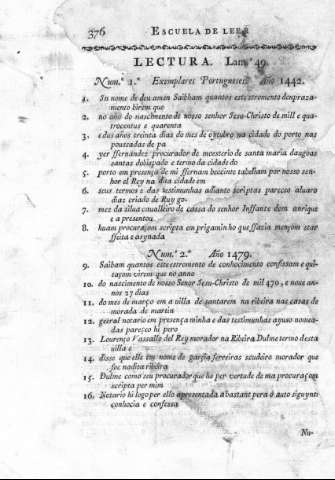 376 ESCUELA DE LEER
LECTURA. Lam. 49.
Num.º 1.º Exemplares Portugueses Año 1442.
1. En nome de deu amen Saibam quantos este estromento despraza-
mento birem que
2. no año do nascimento de nosso senhor Sesu-Christo de mill e qua-
trocentos e quarenta
3. e dus años treinta dias do mes de outubro na cidade do porto nas
pousadas de pa
4. yer ffernández procurador do moesterio de santa maria daugoas
santas dobispado e termo da cidade do
5. porto em presença de mi ffernam beccinto tabaliam por nosso sen-
hor el Rey na dita cidade em
6. seus termos e das testimunhas adiante scriptas paresceo alvaro
diaz criado de Ruy go-
7. mez da silua cauaileiro da cassa do senhor Inffante dom anrique
e a presentou
8. huum procuraçom scripta em prigaminho que ffazia mençom star
ffeita e asynada
Num.º 2.º Año 1479.
9. Saibam quantos este estromento de conhecimento confessam e qui-
taçom virem que no anno
10. do nascimento de nosso Senor Sesu-Christo de mil 470, e noue an-
nos 27 dias
11. do mes de março em a villa de santarem na ribeira nas casas de
morada de martin
12. geeral notario em presença minha e das testimunhas ajuso nomea-
das paresço hi pero
13. Lourenço Vassallo del Rey morador na Ribeira Dulme termo desta
villa e
14. disso que elle em nome de garçia ferreiros scudeiro morador que
foe na dita ribeira
15. Dulme como seu procurador que he per vertude de ma procuraçom
scripta per mim
16. Notario hi logo per ello apresentada abastant pera o auto siguynte
conhocia e confessa
No-